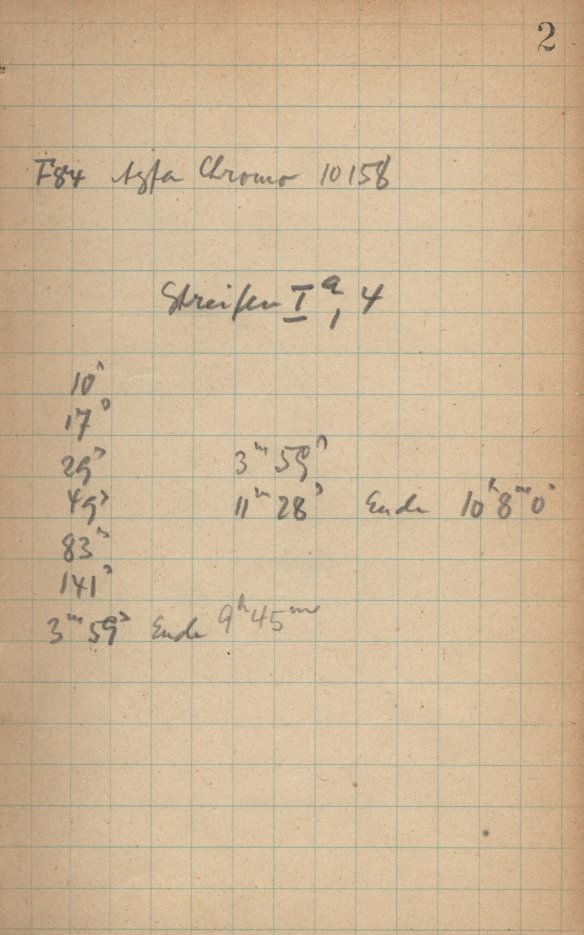 2
F84 Agfa Chromo 10158
Streifen I a, 4
10ˢ
17ˢ
29ˢ 3ᵐ 59ˢ
49ˢ 11ᵐ 28ˢ Ende 10ʰ 8ᵐ 0ˢ
83ˢ
141ˢ
3ᵐ 59ˢ Ende 9ʰ 45ᵐ